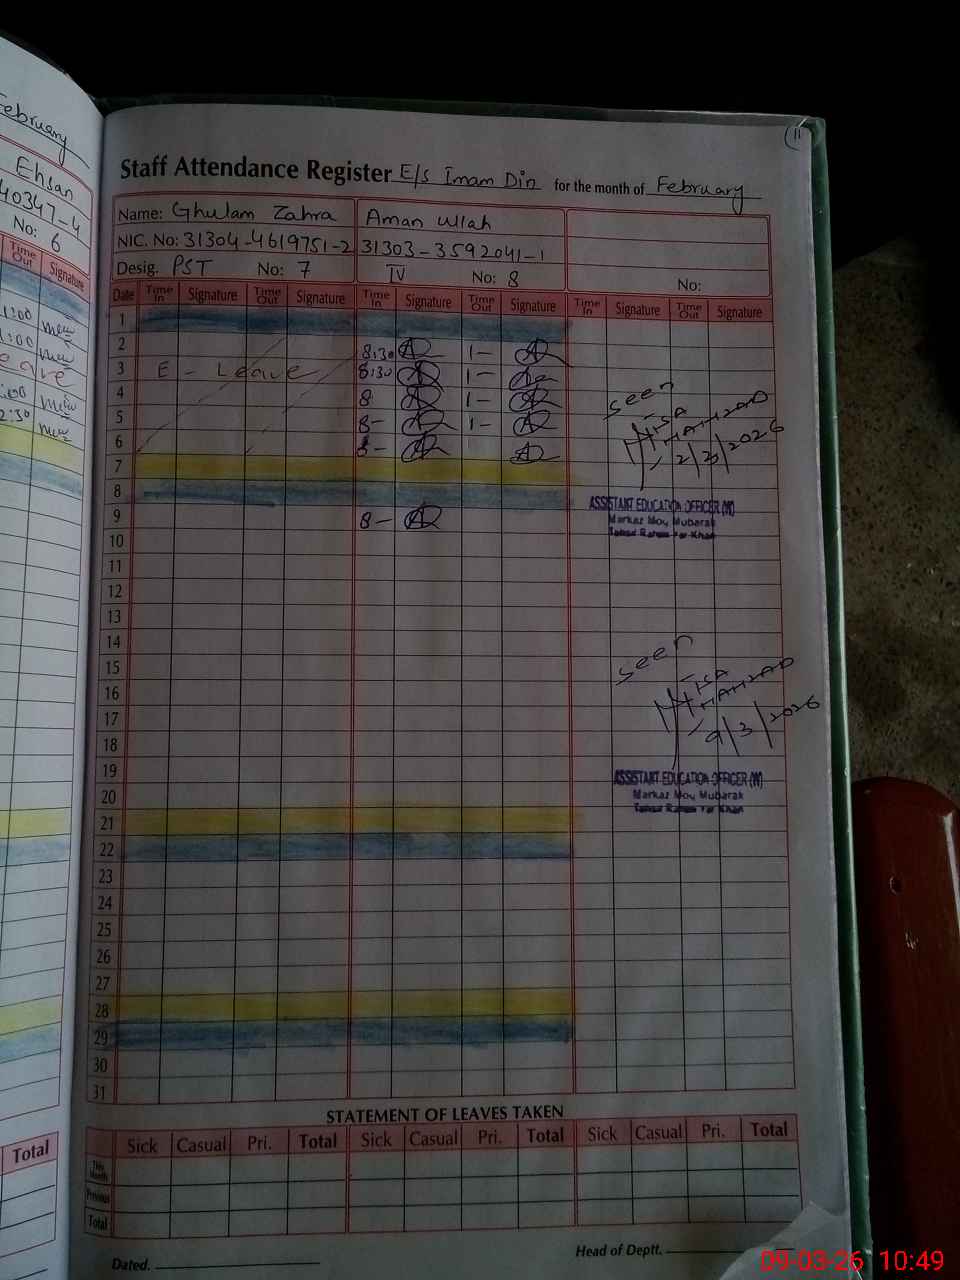 February
Ehsan
40347-4
No: 6
Time Out Signature
1:00
1:00
eave
:00
2:30
Total
11
Staff Attendance Register E/S Imam Din for the month of February
Name: Ghulam Zahra Aman Ullah
NIC. No: 31304-4619751-2 31303-3592041-1
Desig. PST No: 7 IV No: 8 No:
Date Time In Signature Time Out Signature Time In Signature Time Out Signature Time In Signature Time Out Signature
1
2 8:30 1-
3 E - Leave 8:30 1-
4 8 1-
5 8- 1-
6 8-
7
8
9 8-
10
11
12
13
14
15
16
17
18
19
20
21
22
23
24
25
26
27
28
29
30
31
seen
ASSISTANT EDUCATION OFFICER (W)
Markaz Moy Mubarak
Tehsil Rahim Yar Khan
seen
9/3/2026
ASSISTANT EDUCATION OFFICER (W)
Markaz Moy Mubarak
Tehsil Rahim Yar Khan
STATEMENT OF LEAVES TAKEN
Sick Casual Pri. Total Sick Casual Pri. Total Sick Casual Pri. Total
This Month
Previous
Total
Dated. Head of Deptt.
09-03-26 10:49